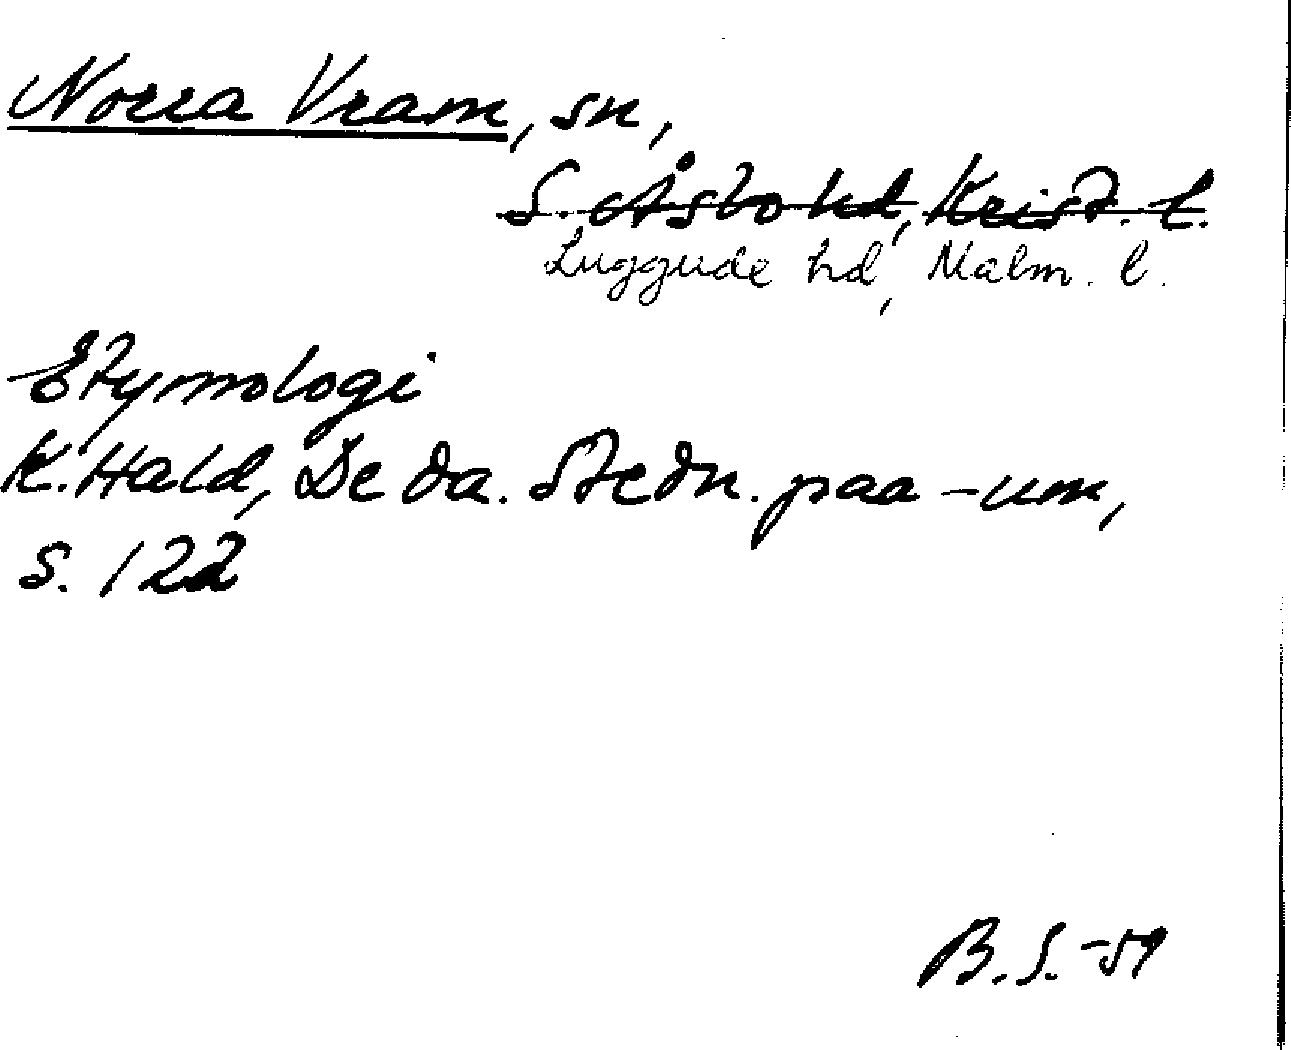 Norra Vram, sn,
S. Åsbo hd, Krist. l.
Luggude hd, Malm. l.
Etymologi
K. Hald, De da. Stedn. paa -um,
s. 122
B.S. -59